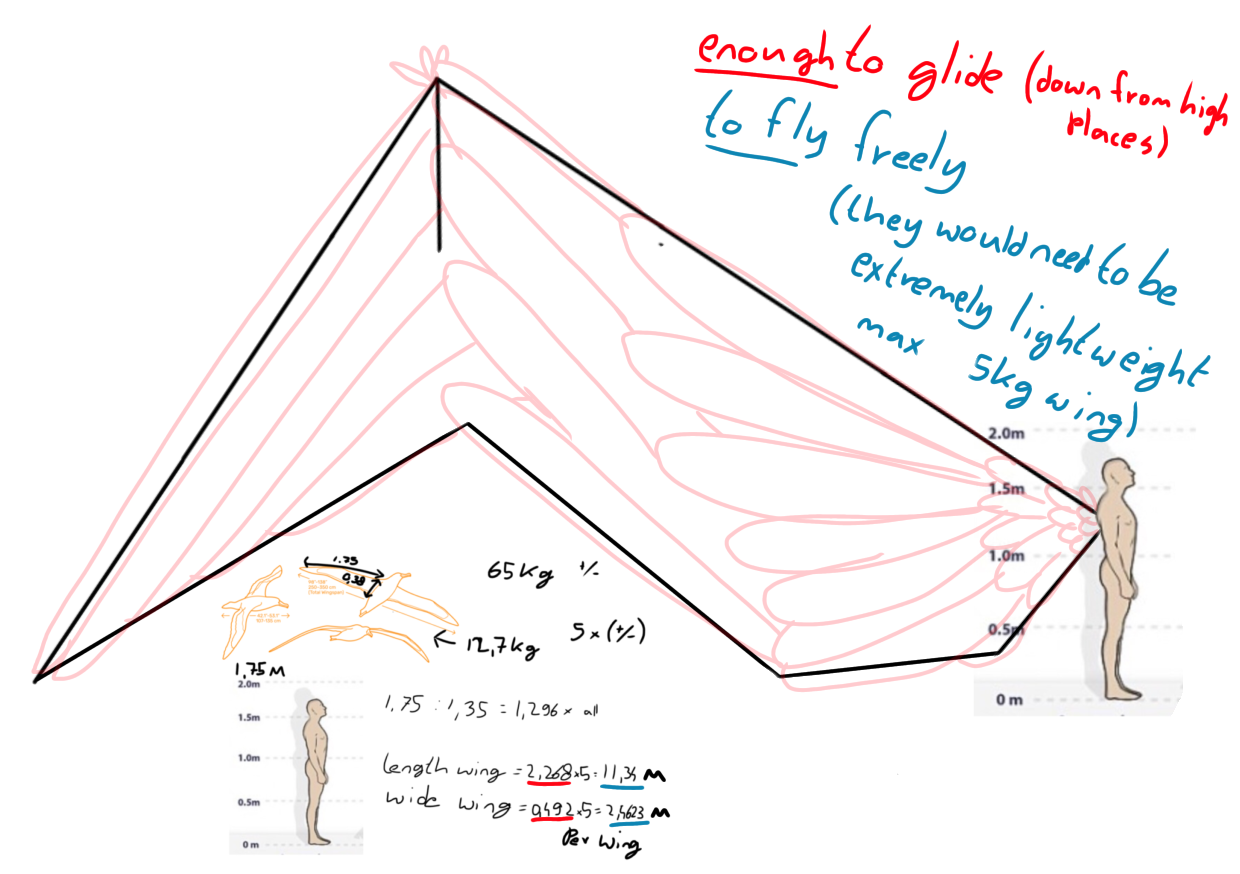 enough to glide (down from high
places)
to fly freely
(they would need to be
extremely lightweight
max 5kg wing)
2.0m
1.5m
1.0m
0.5m
0 m
1.75
0,38
65kg +/-
12,7kg
5x (+/-)
1,75 M
2.0m
1.5m
1.0m
0.5m
0 m
1,75 : 1,35 = 1,296 x all
length wing = 2,268x5=11,34 M
wide wing = 0,492x5=2,4623 M
Per wing